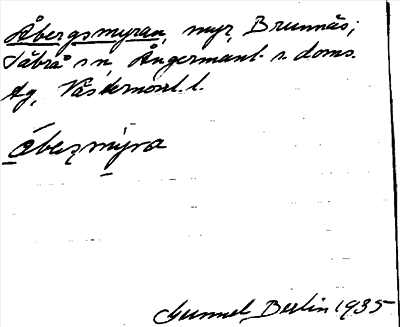 Åbergsmyran, myr, Brunnäs;
Säbrå sn, Ångermanl. s. doms.
ag, Västernorrl. l.
åbeʐmýra
Gunnel Berlin 1935